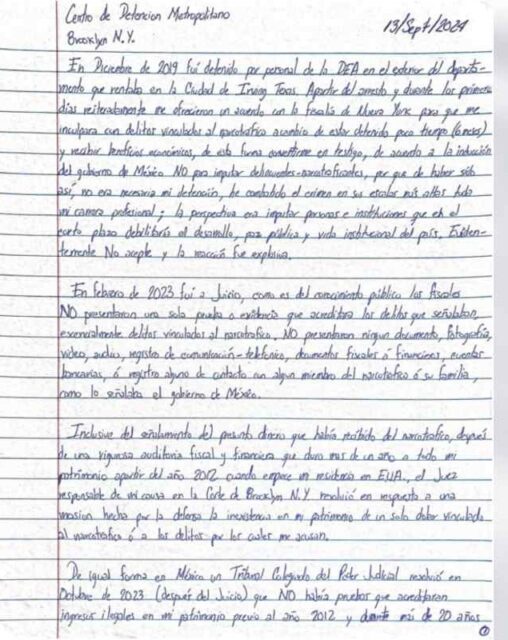 Centro de Detencion Metropolitano
13/Sept/2024
Brooklyn N.Y.
En Diciembre de 2019 fui detenido por personal de la DEA en el exterior del departa-
mento que rentaba en la Ciudad de Irving Texas. Apartir del arresto y durante los primeros
días reiteradamente me ofrecieron un acuerdo con la fiscalía de Nueva York para que me
inculpara con delitos vinculados al narcotrafico acambio de estar detenido poco tiempo (6 meses)
y recibir beneficios económicos, de esta forma convertirme en testigo, de acuerdo a la inducción
del gobierno de México NO para imputar delincuentes-narcotraficantes, por que de haber sido
así, no era necesaria mi detención, he combatido el crimen en sus escalas más altas toda
mi carrera profesional; la perspectiva era imputar personas e instituciones que en el
corto plazo debilitaría el desarrollo, paz pública y vida institucional del país. Eviden-
temente No acepte y la reacción fue explosiva.
En febrero de 2023 fui a Juicio, como es del conocimiento público los fiscales
NO presentaron una sola prueba o evidencia que acreditara los delitos que señalaban,
esencialmente delitos vinculados al narcotrafico. NO presentaron ningun documento, fotografía,
video, audios, registro de comunicación-telefónica, documentos fiscales ó financieros, cuentas
bancarias, ó registro alguno de contacto con algun miembro del narcotrafico ó su familia,
como lo señalaba el gobierno de México.
Inclusive del señalamiento del presunto dinero que había recibido del narcotrafico, después
de una rigurosa auditoria fiscal y financiera que duro mas de un año a todo mi
patrimonio apartir del año 2012 cuando empece mi residencia en EUA., el Juez
responsable de mi causa en la Corte de Brooklyn N.Y resolvió en respuesta a una
mosion hecha por la defensa la inexistencia en mi patrimonio de un solo dolar vinculado
al narcotrafico ó a los delitos por los cuales me acusan.
De igual forma en México un Tribunal Colegiado del Poder Judicial resolvió en
Octubre de 2023 (después del Juicio) que NO había pruebas que acreditaran
ingresos ilegales en mi patrimonio previo al año 2012 y durante más de 20 años